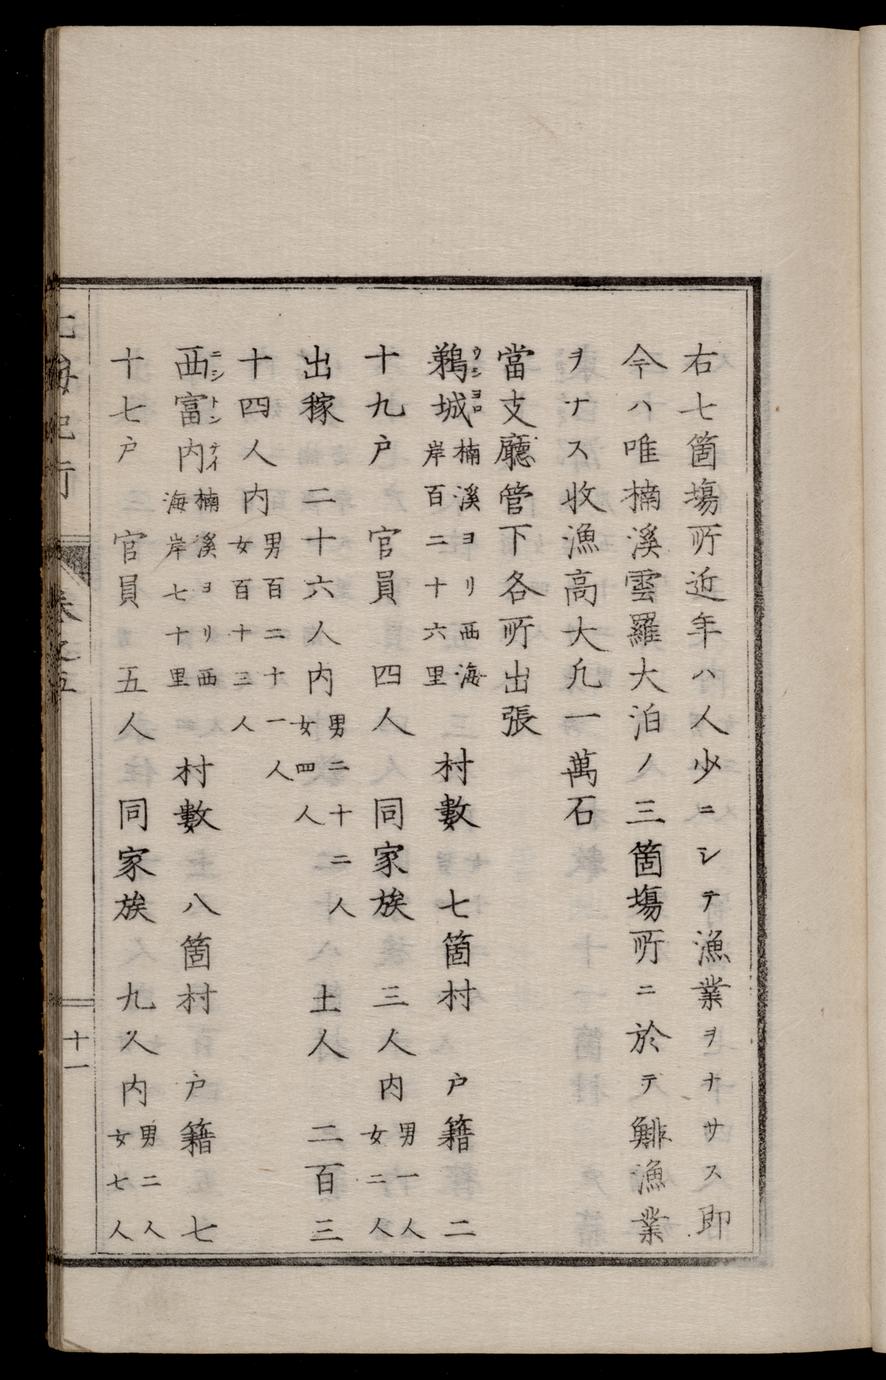 右七箇塲所近年ハ人少ニシテ漁業ヲナサス即
今ハ唯楠溪雲羅大泊ノ三箇塲所ニ於テ鯡漁業
ヲナス收漁高大凢一萬石
當支廳管下各所出張
鵜城ウショロ 楠溪ヨリ西海岸百二十六里 村數 七箇村 戸籍 二
十九戸 官員 四人 同家族 三人内男一人女二人
出稼 二十六人内男二十二人女四人 土人 二百三
十四人内男百二十一人女百十三人
西富内ニシトンナイ 楠溪ヨリ西海岸七十里 村數 八箇村 戸籍 七
十七戸 官員 五人 同家族 九人内男二人女七人
北海紀行 卷之五 十一